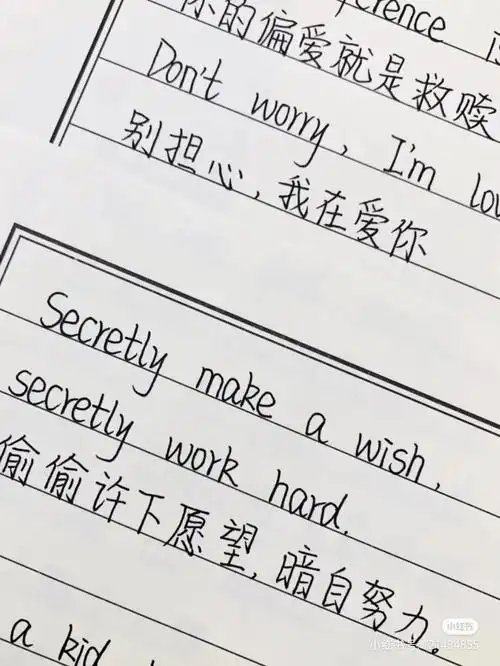 你的偏爱就是救赎
Don't worry, I'm
别担心，我在爱你
Secretly make a wish,
secretly work hard.
偷偷许下愿望，暗自努力。
a kid
小红书